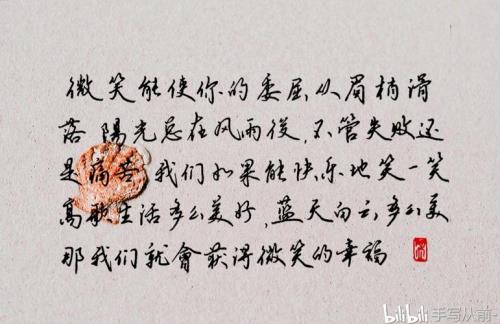 微笑能使你的委屈从眉梢滑
落 陽光总在风雨後,不管失败还
是痛苦 我们如果能快乐地笑一笑
高歌生活多么美好,蓝天白云多么美
那我们就會获得微笑的幸福
bilibili 手写从前-